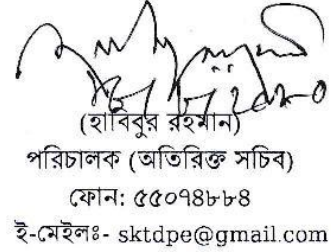 (হাবিবুর রহমান)
পরিচালক (অতিরিক্ত সচিব)
ফোন: ৫৫০৭৪৮৮৪
ই-মেইলঃ- sktdpe@gmail.com